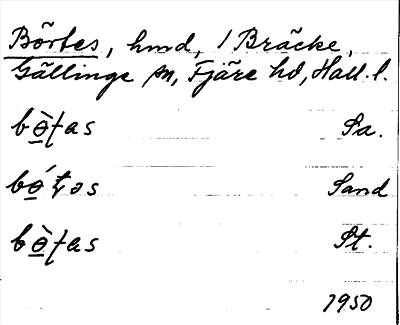 Börtes, hmd, 1 Bräcke,
Gällinge sn, Fjäre hd, Hall. l.
bɵ̠̀ʈas Sa.
bɵ̠́ʈəs Sand
bɵ̠̀ʈas St.
1950